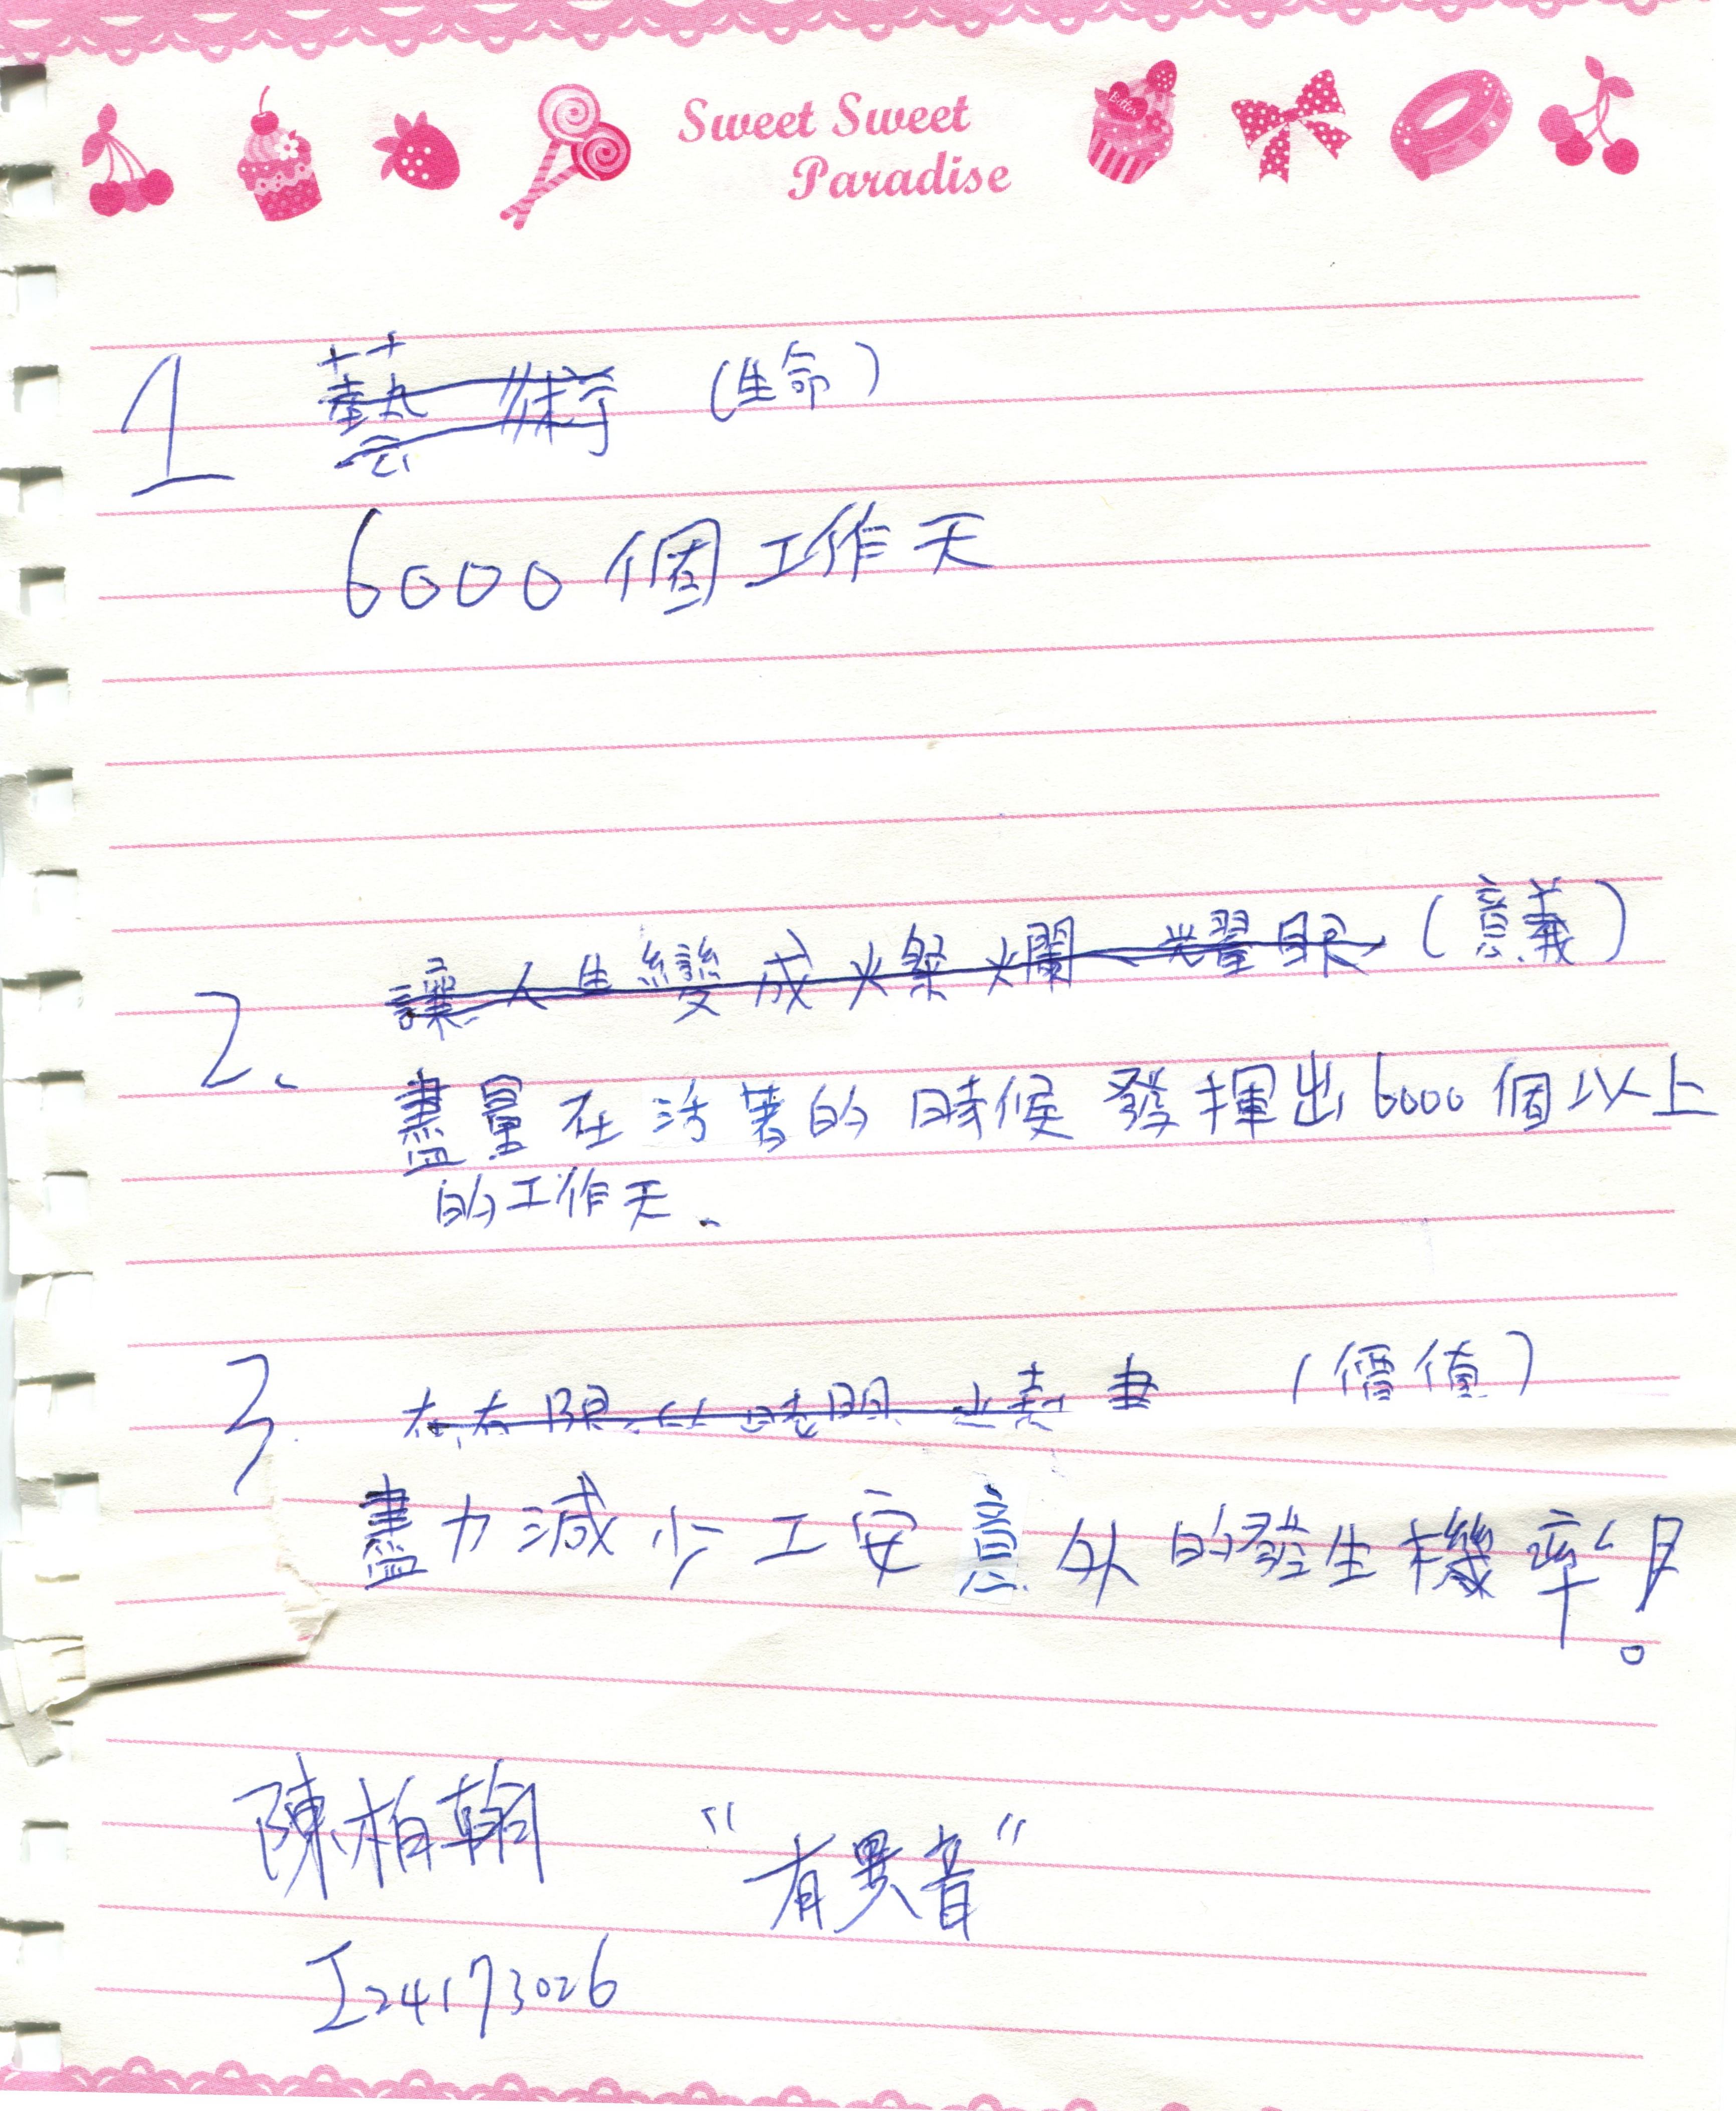 Sweet Sweet
Paradise
1 藝術 (生命)
6000個工作天
讓人生變成燦爛、耀眼 (意義)
2、盡量在活著的時候發揮出6000個以上
的工作天、
3. 在有限的時間 (價值)
盡力減少工安意外的發生機率
。
陳柏翰 "有異音"
I24173026